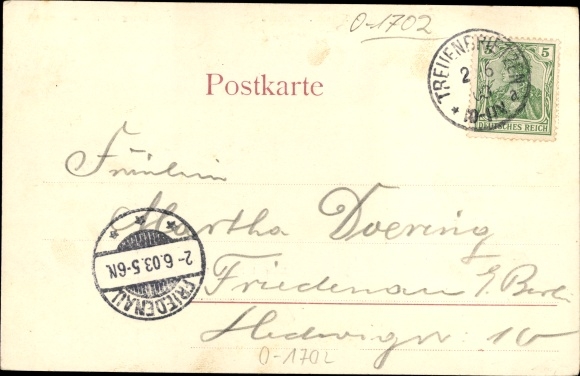 O-1702
Postkarte
TREUENBRIETZEN a
2 6
5
DEUTSCHES REICH
Fräulein
Martha Doering
Friedenau b/ Berlin
Hedwigstr 10
2-6.03.5-6N.
FRIEDENAU
O-1702